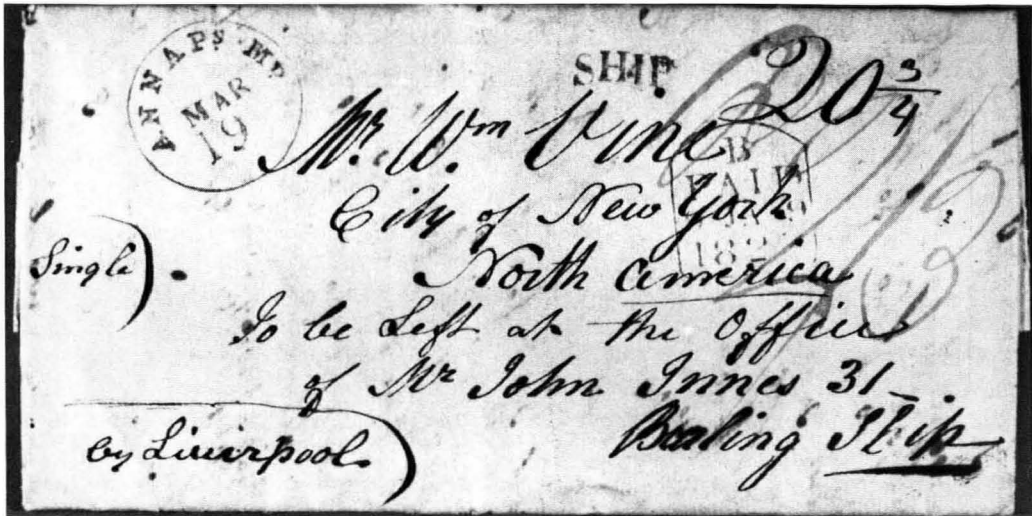 ANNAPS. MD
MAR
19
SHIP
20 3/4
Mr. Wm Vine
B
PAID
City of New York
18
Single
North America
To be Left at the Office
of Mr John Innes 31
Burling Slip
by Liverpool